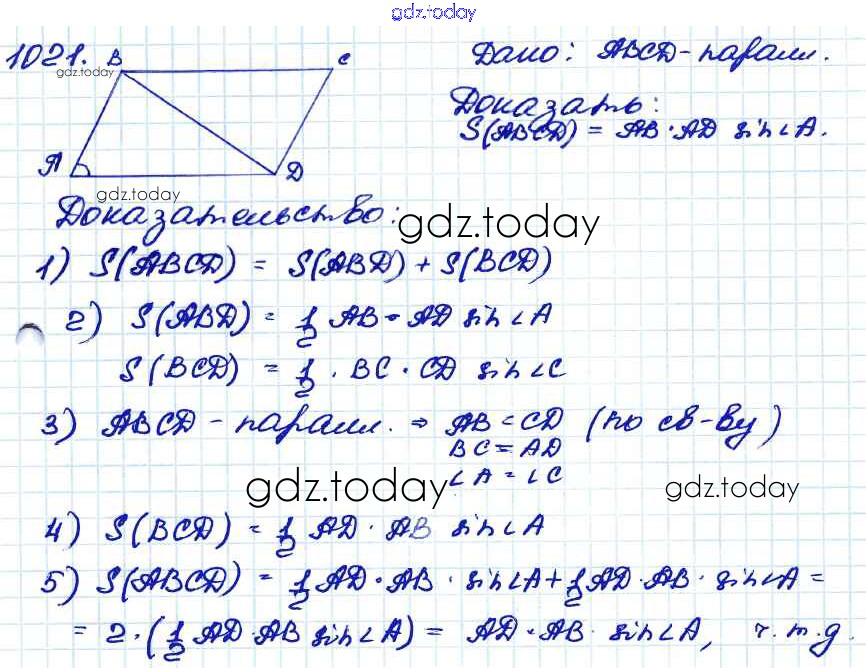 gdz.today
1021.
B
C
Дано: ABCD-паралл.
gdz.today
Доказать:
S(ABCD) = AB·AD sin∠A.
A
D
gdz.today
Доказательство:
gdz.today
1) S(ABCD) = S(ABD) + S(BCD)
2) S(ABD) = 1/2 AB·AD sin∠A
S(BCD) = 1/2 · BC · CD sin∠C
3) ABCD - паралл. ⇒ AB = CD (по св-ву)
BC = AD
∠A = ∠C
gdz.today
gdz.today
4) S(BCD) = 1/2 AD · AB sin∠A
5) S(ABCD) = 1/2 AD·AB · sin∠A + 1/2 AD·AB · sin∠A =
= 2·(1/2 AD·AB sin∠A) = AD·AB · sin∠A, ч.т.д.